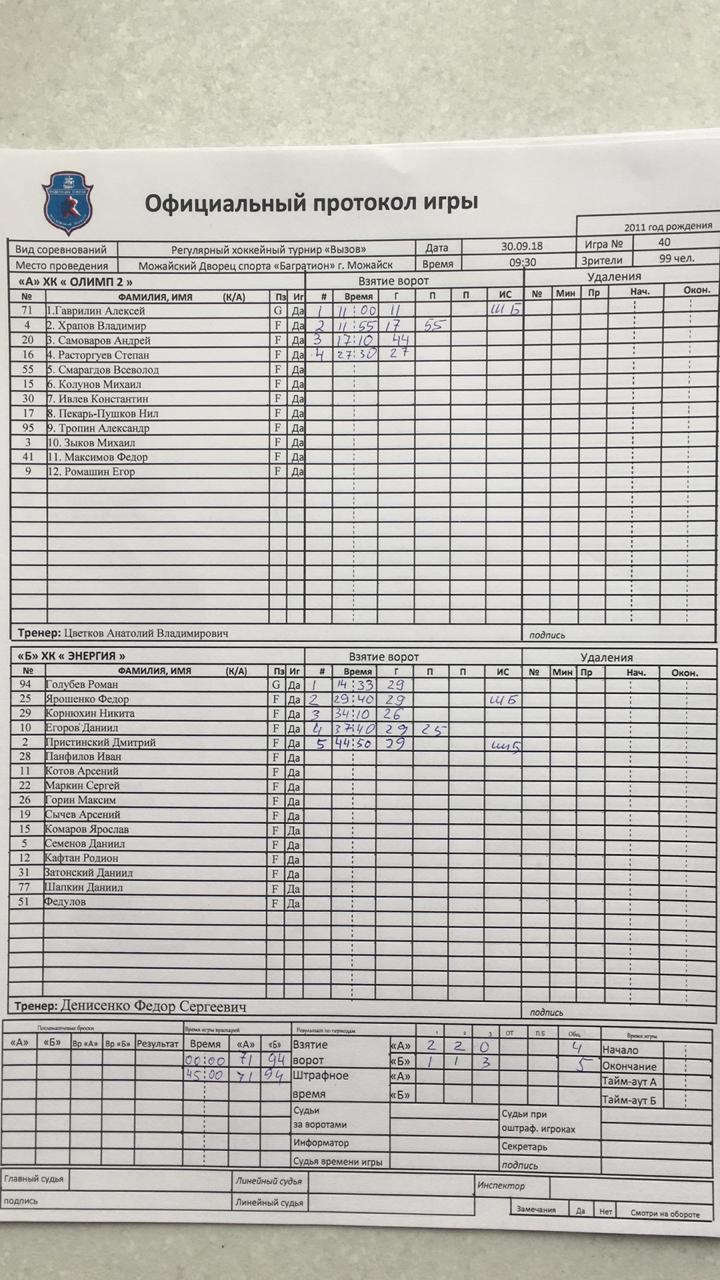 Официальный протокол игры
2011 год рождения
Вид соревнований Регулярный хоккейный турнир «Вызов» Дата 30.09.18 Игра № 40
Место проведения Можайский Дворец спорта «Багратион» г. Можайск Время 09:30 Зрители 99 чел.
«А» ХК « ОЛИМП 2 » Взятие ворот Удаления
№ ФАМИЛИЯ, ИМЯ (К/А) Пз Иг # Время Г П П ИС № Мин Пр Нач. Окон.
71 1.Гаврилин Алексей G Да 1 11:00 11 ШБ
4 2. Храпов Владимир F Да 2 11:55 17 55
20 3. Самоваров Андрей F Да 3 17:10 44
16 4. Расторгуев Степан F Да 4 27:30 27
55 5. Смарагдов Всеволод F Да
15 6. Колунов Михаил F Да
30 7. Ивлев Константин F Да
17 8. Пекарь-Пушков Нил F Да
95 9. Тропин Александр F Да
3 10. Зыков Михаил F Да
41 11. Максимов Федор F Да
9 12. Ромашин Егор F Да
Тренер: Цветков Анатолий Владимирович подпись
«Б» ХК « ЭНЕРГИЯ » Взятие ворот Удаления
№ ФАМИЛИЯ, ИМЯ (К/А) Пз Иг # Время Г П П ИС № Мин Пр Нач. Окон.
94 Голубев Роман G Да 1 14:33 29
25 Ярошенко Федор F Да 2 29:40 29 ШБ
29 Корнюхин Никита F Да 3 34:10 26
10 Егоров Даниил F Да 4 37:40 29 25
2 Пристинский Дмитрий F Да 5 44:50 29 ШБ
28 Панфилов Иван F Да
11 Котов Арсений F Да
22 Маркин Сергей F Да
26 Горин Максим F Да
19 Сычев Арсений F Да
15 Комаров Ярослав F Да
5 Семенов Даниил F Да
12 Кафтан Родион F Да
31 Затонский Даниил F Да
77 Шапкин Даниил F Да
51 Федулов F Да
Тренер: Денисенко Федор Сергеевич подпись
Послематчевые броски Время игры вратарей Результат по периодам 1 2 3 ОТ П.Б Общ. Время игры
«А» «Б» Вр «А» Вр «Б» Результат Время «А» «Б» Взятие «А» 2 2 0 4 Начало
00:00 71 94 ворот «Б» 1 1 3 5 Окончание
45:00 71 94 Штрафное «А» Тайм-аут А
время «Б» Тайм-аут Б
Судьи за воротами Судьи при оштраф. игроках
Информатор Секретарь
Судья времени игры подпись
Главный судья Линейный судья Инспектор
подпись Линейный судья Замечания Да Нет Смотри на обороте